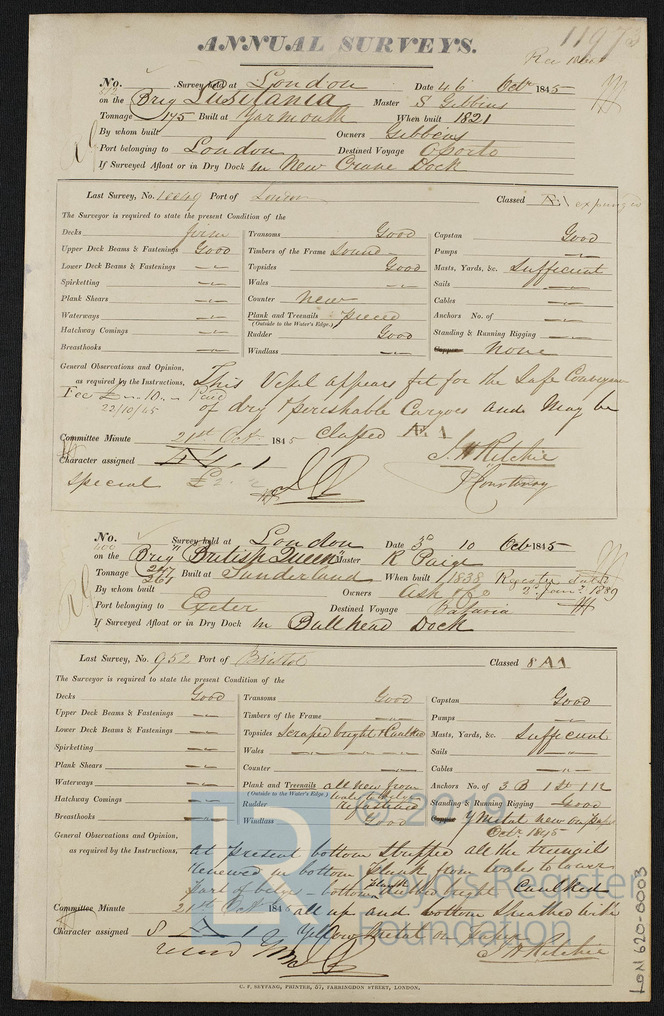 ANNUAL SURVEYS.
No. Survey held at London Date 4 & 6 Octr 1845
on the Brig Lusitania Master S Gibbins
Tonnage 175 Built at Yarmouth When built 1821
By whom built Owners Gibbens
Port belonging to London Destined Voyage Oporto
If Surveyed Afloat or in Dry Dock in New Crane Dock
Last Survey, No. Port of London Classed Æ1 expunged
The Surveyor is required to state the present Condition of the
Decks firm
Upper Deck Beams & Fastenings Good
Lower Deck Beams & Fastenings "
Spirketting "
Plank Shears "
Waterways "
Hatchway Comings "
Breasthooks "
Transoms Good
Timbers of the Frame Sound
Topsides Good
Wales "
Counter New
Plank and Treenails pieced
(Outside to the Water's Edge.)
Rudder Good
Windlass "
Capstan Good
Pumps "
Masts, Yards, &c. Sufficient
Sails "
Cables "
Anchors No. of "
Standing & Running Rigging "
None
General Observations and Opinion,
as required by the Instructions, This Vessel appears fit for the Safe Conveyance
Fee £ 10. Paid
22/10/45
of dry & perishable Cargoes and May be
Classed Æ 1
Committee Minute 21st Oct. 1845
J. H Ritchie
Character assigned Æ 1
Special
Courtenay
No. Survey held at London Date 3d 10 Octr 1845
on the Brig "British Queen" Master R Paige
Tonnage 261 Built at Sunderland When built 1838
By whom built Owners Ash & Co
Port belonging to Exeter Destined Voyage Batavia
If Surveyed Afloat or in Dry Dock in Bull head Dock
Last Survey, No. 952 Port of Bristol Classed 8 A1
The Surveyor is required to state the present Condition of the
Decks Good
Upper Deck Beams & Fastenings "
Lower Deck Beams & Fastenings "
Spirketting "
Plank Shears "
Waterways "
Hatchway Comings "
Breasthooks "
Transoms Good
Timbers of the Frame "
Topsides Scraped bright & Caulked
Wales " " " "
Counter "
Plank and Treenails all new from
(Outside to the Water's Edge.)
Rudder Refastened
Windlass Good
Capstan Good
Pumps "
Masts, Yards, &c. Sufficient
Sails "
Cables "
Anchors No. of 3 B 1 St 1 K
Standing & Running Rigging Good
Y Metal new
Octr 1845
General Observations and Opinion,
as required by the Instructions, At present bottom Stripped all the treenails
renewed in bottom plank from wales to lower
part of bilges - bottom plank dubbed bright Caulked
Committee Minute 21st Octr 1845 all up and bottom Sheathed with
Character assigned 8 A 1 Yellow Metal
J. H. Ritchie
C. F. SEYFANG, PRINTER, 57, FARRINGDON STREET, LONDON.
LR
© 2019
Lloyd's Register
Foundation
LON 620-0003